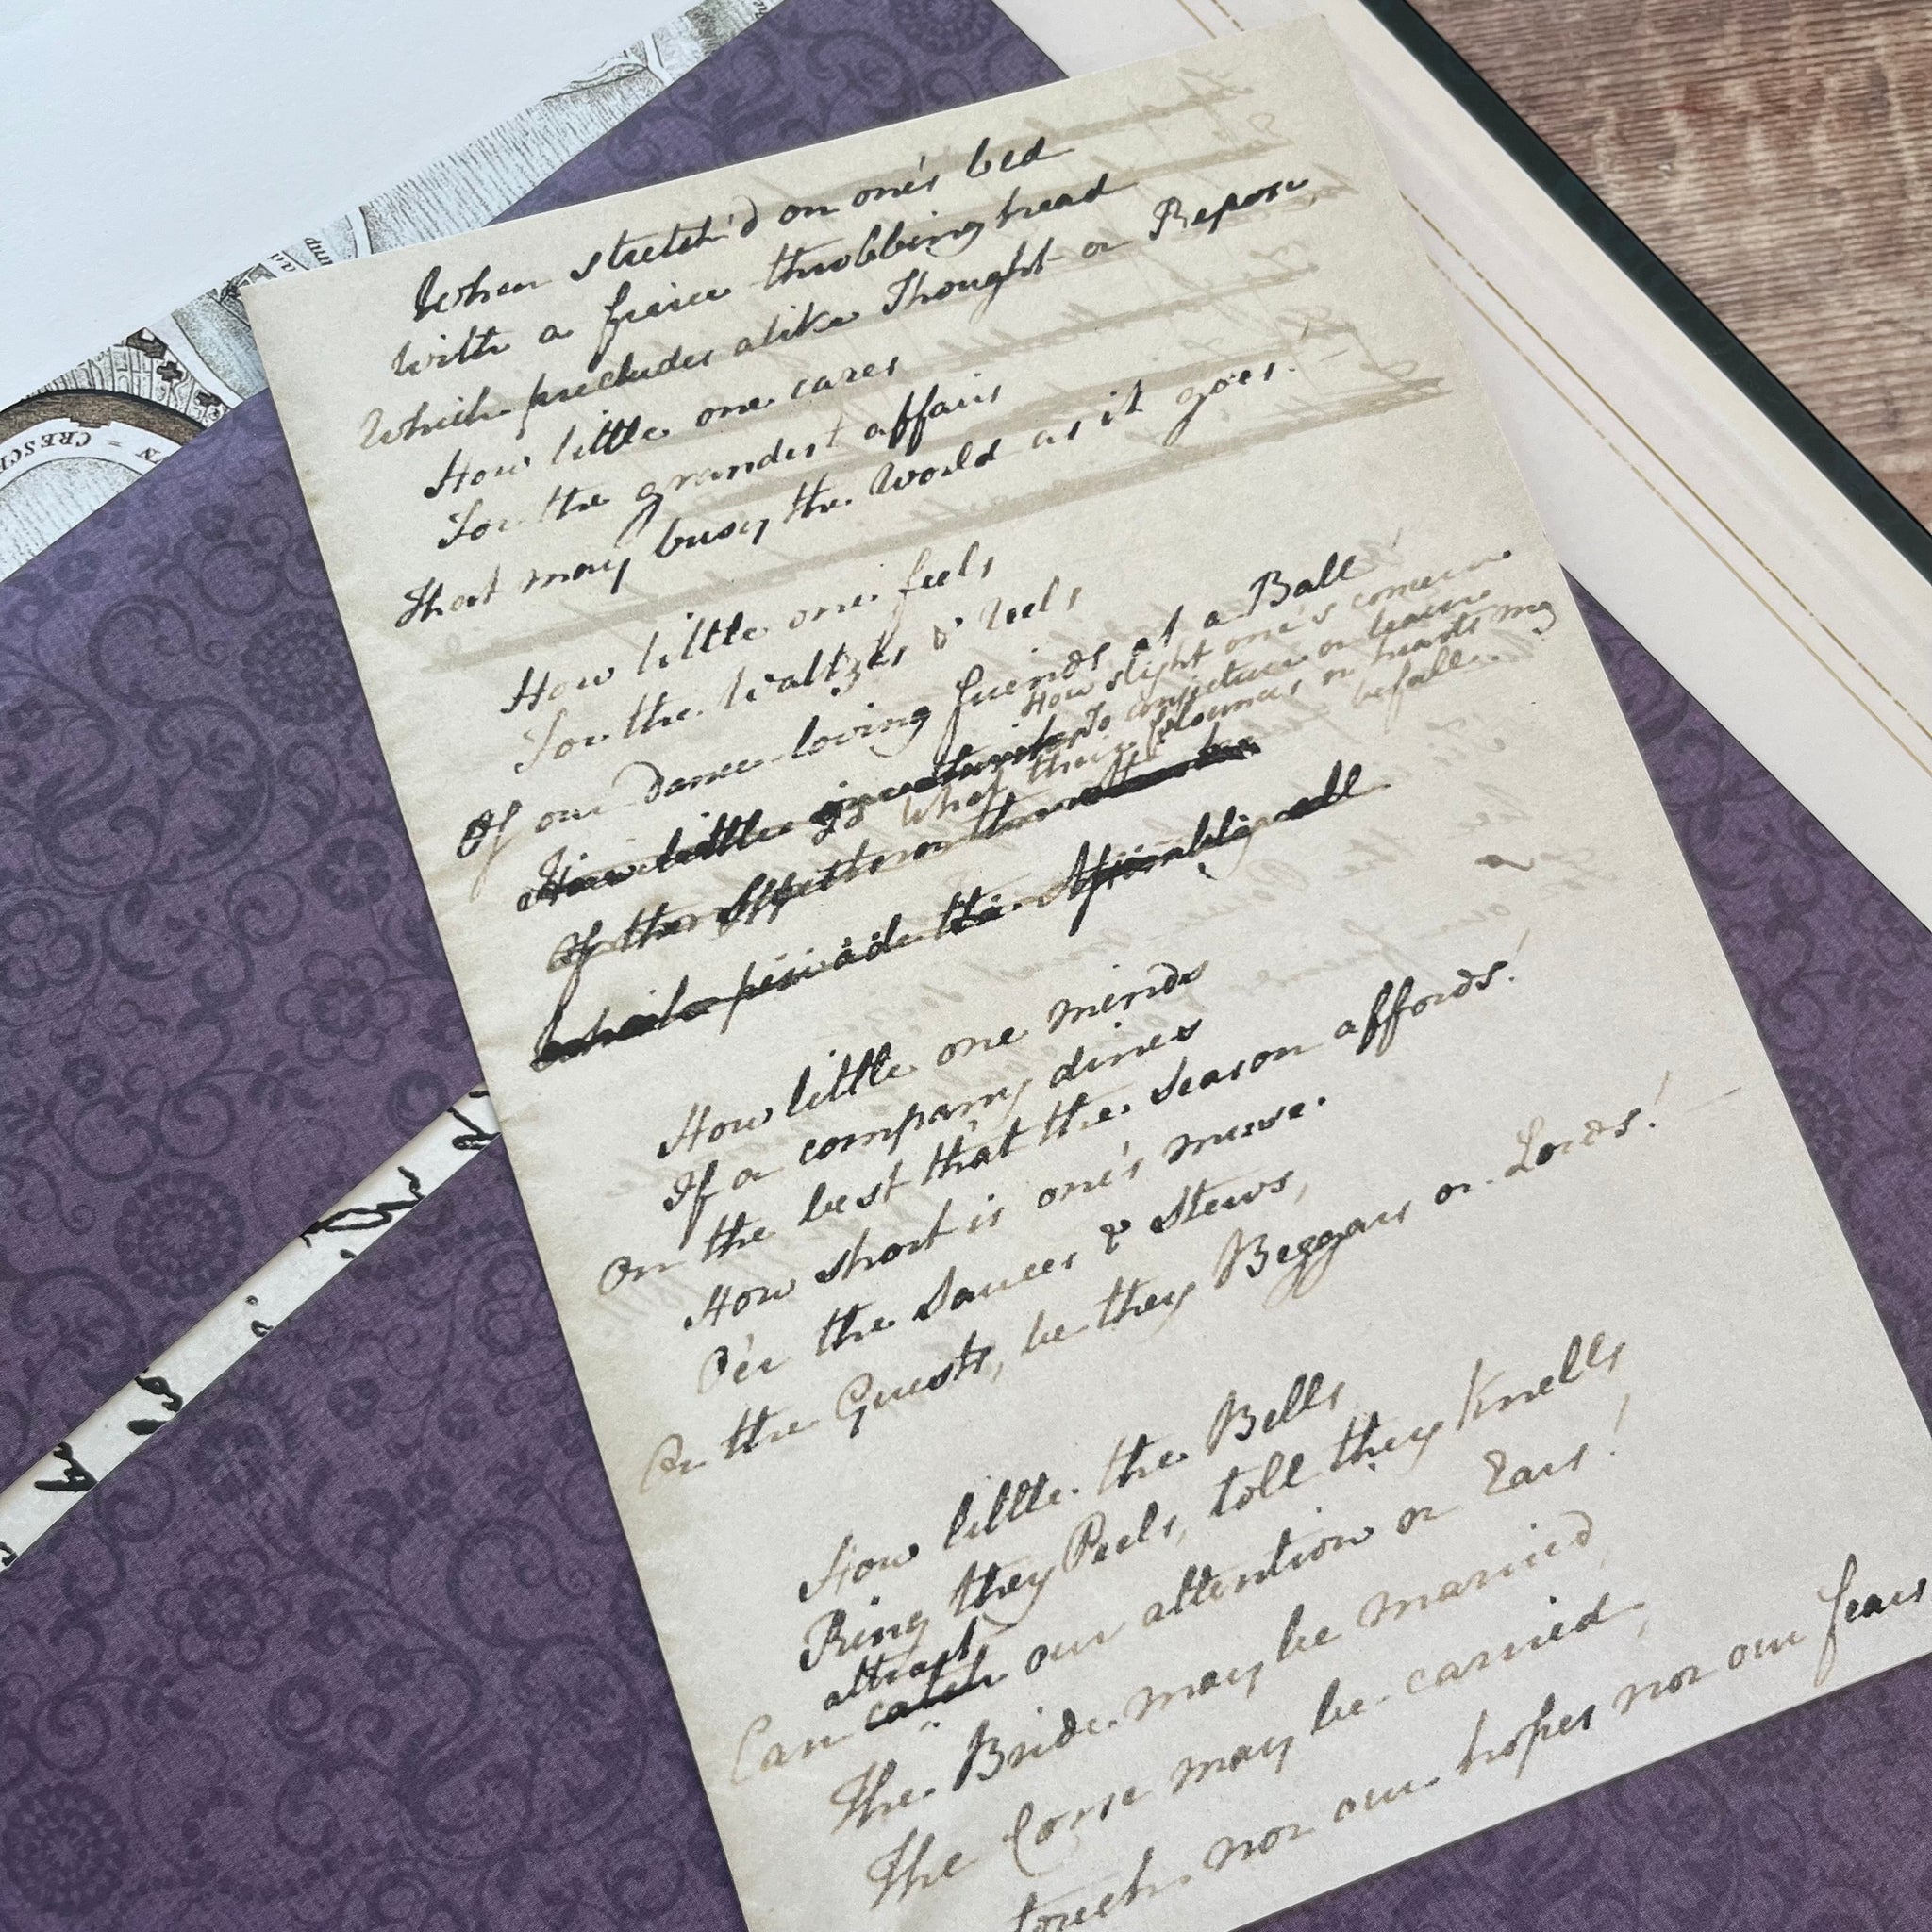 When stretch'd on one's bed
With a fierce throbbing head
Which precludes alike Thought or Repose,
How little one cares
For the grandest affairs
That may busy the World as it goes!
How little one feels
For the Waltzes & reels
Of our dance-loving friends at a Ball!
How slight one's concern
To conjecture or learn
What their flounces or hearts may
befall.
How little
Of the
which pervade the Assembly all
How little one minds
If a company dines
On the best that the Season affords!
How short is one's muse
O'er the Sauces & Stews,
Or the Guests, be they Beggars or Lords!
How little the Bells,
Ring they Peels, toll they Knells
attract
Can catch our attention or Ears!
The Bride may be married,
The Corse may be carried,
touch nor our hopes nor our fears
CRESC